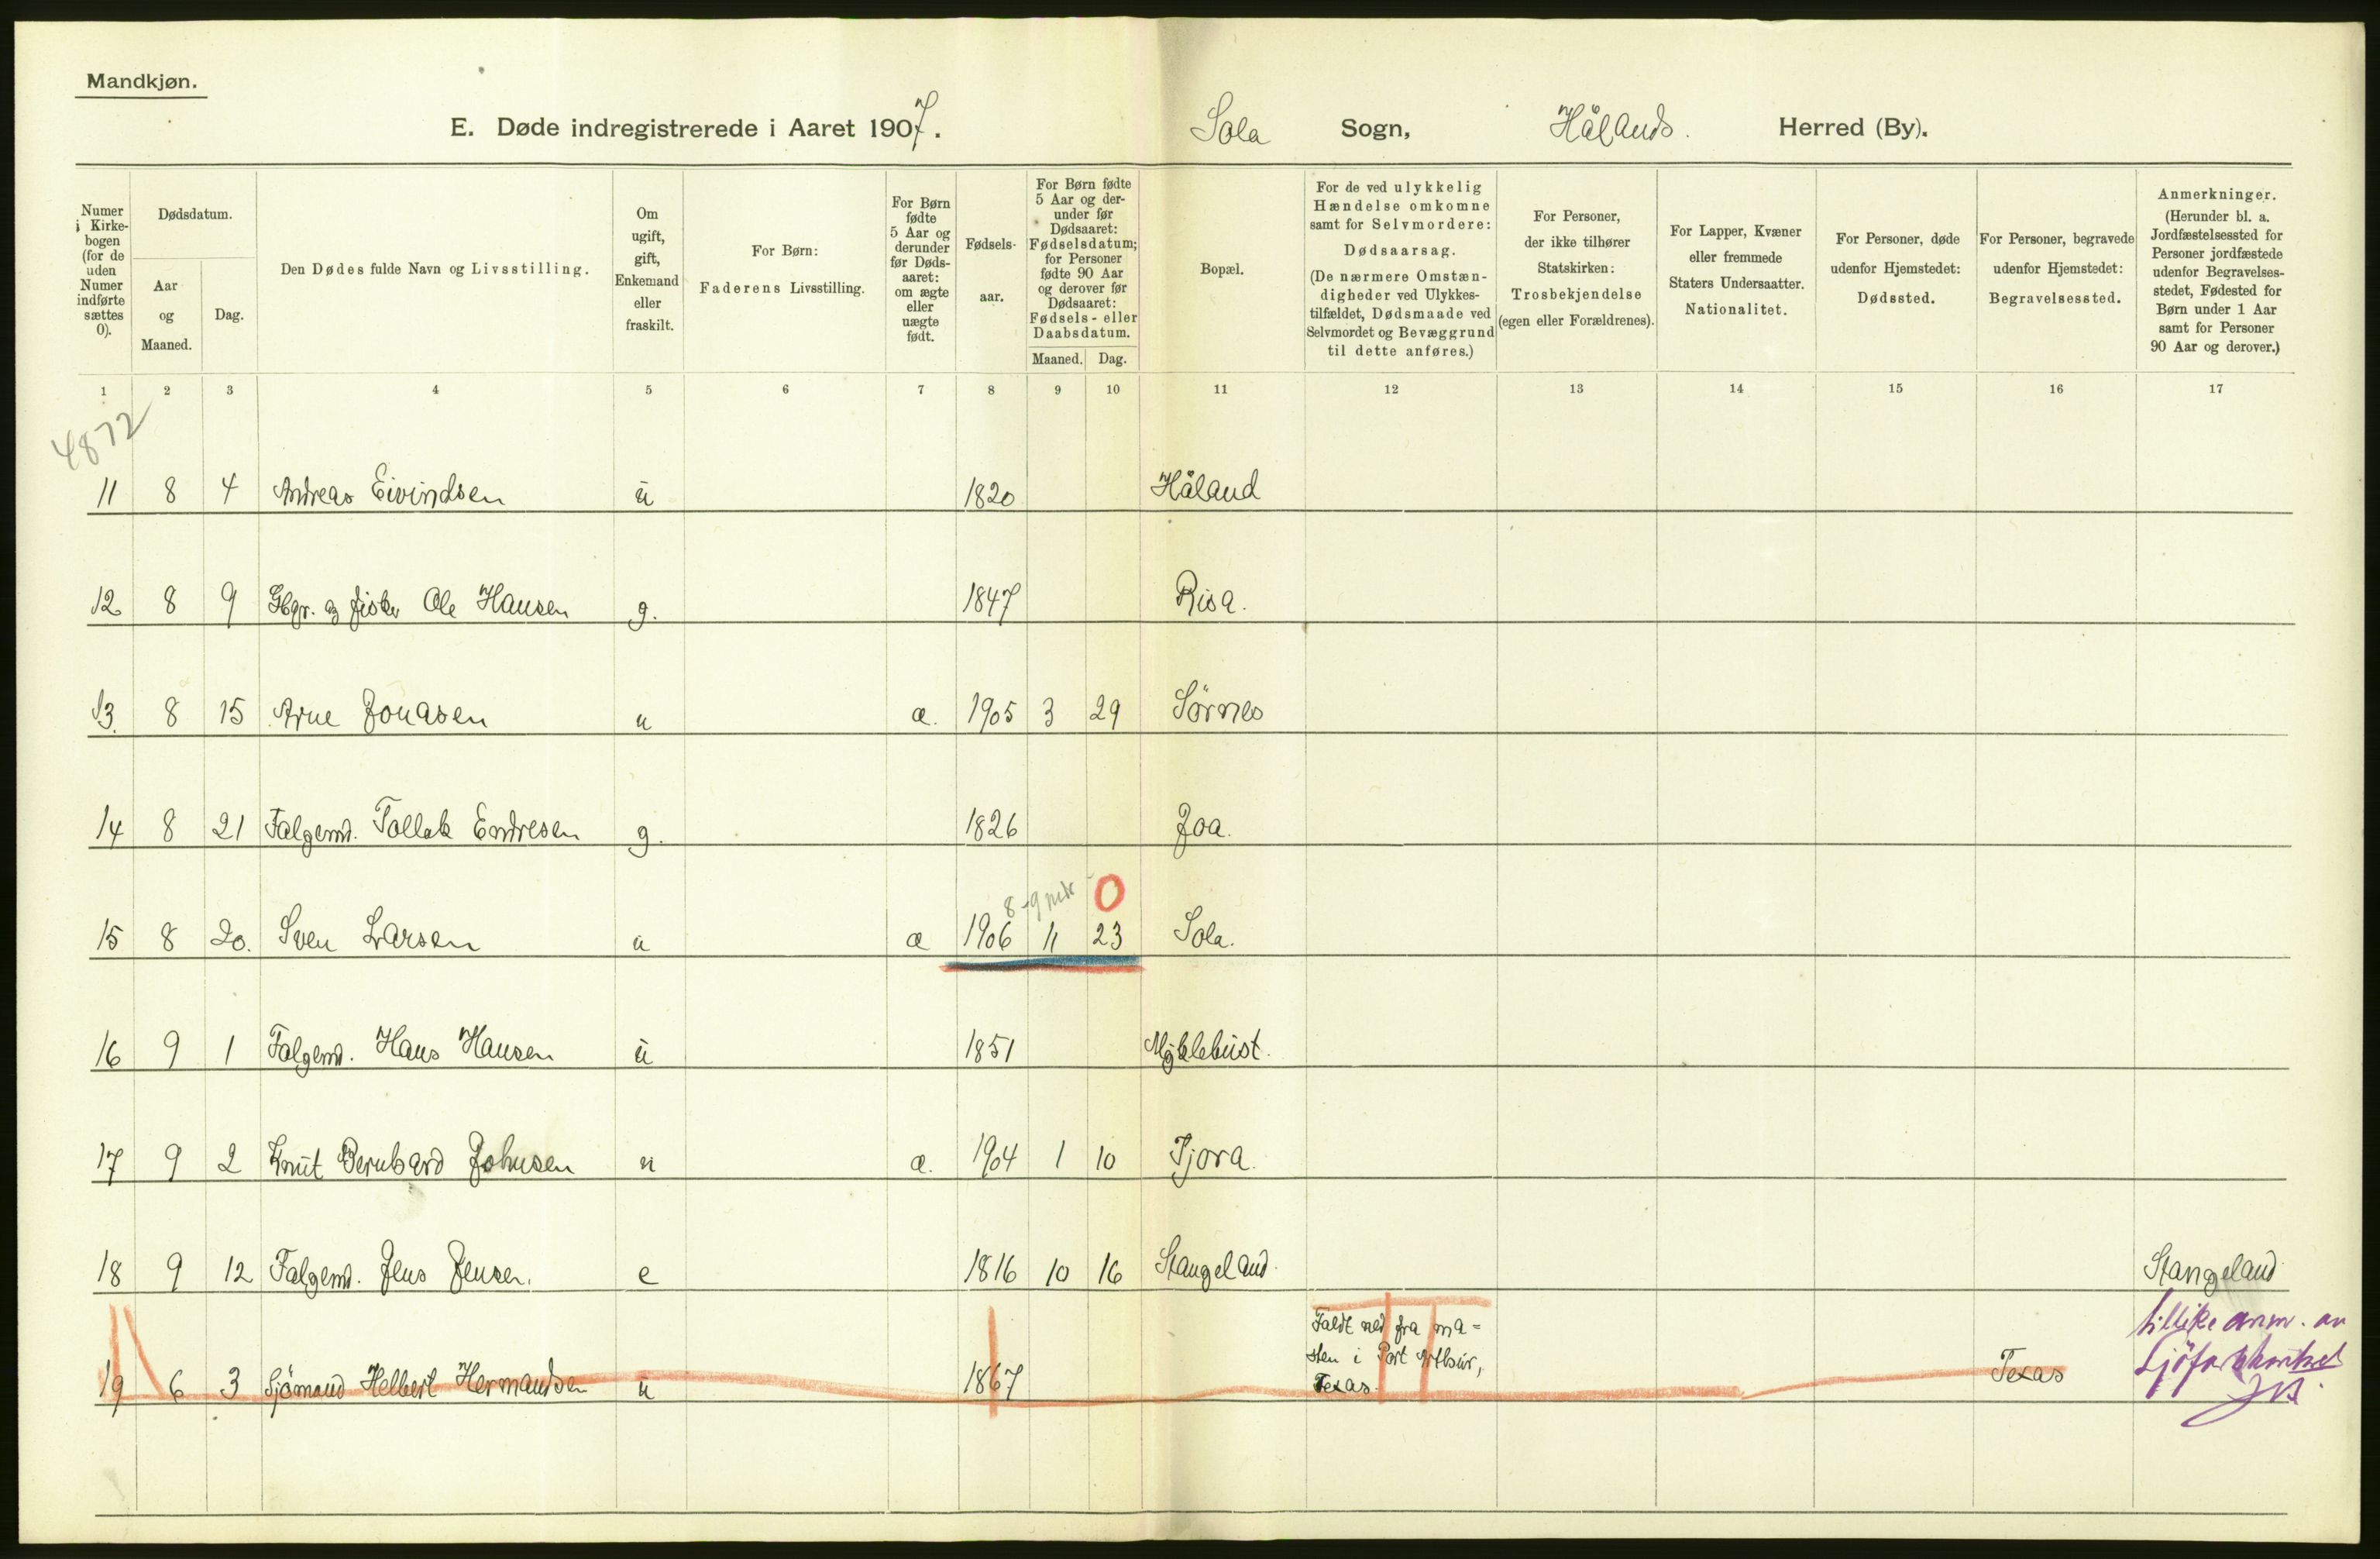 Mandkjøn.
E. Døde indregistrerede i Aaret 1907. Sola Sogn, Hålands. Herred (By).
Numer i Kirkebogen (for de uden Numer indførte sættes 0).
Dødsdatum.
Aar og Maaned.
Dag.
Den Dødes fulde Navn og Livsstilling.
Om ugift, gift, Enkemand eller fraskilt.
For Børn: Faderens Livsstilling.
For Børn fødte 5 Aar og derunder før Dødsaaret: om ægte eller uægte født.
Fødselsaar.
For Børn fødte 5 Aar og derunder før Dødsaaret: Fødselsdatum; for Personer fødte 90 Aar og derover før Dødsaaret: Fødsels- eller Daabsdatum.
Maaned. Dag.
Bopæl.
For de ved ulykkelig Hændelse omkomne samt for Selvmordere: Dødsaarsag. (De nærmere Omstændigheder ved Ulykkestilfældet, Dødsmaade ved Selvmordet og Bevæggrund til dette anføres.)
For Personer, der ikke tilhører Statskirken: Trosbekjendelse (egen eller Forældrenes).
For Lapper, Kvæner eller fremmede Staters Undersaatter. Nationalitet.
For Personer, døde udenfor Hjemstedet: Dødssted.
For Personer, begravede udenfor Hjemstedet: Begravelsessted.
Anmerkninger. (Herunder bl. a. Jordfæstelsessted for Personer jordfæstede udenfor Begravelsesstedet, Fødested for Børn under 1 Aar samt for Personer 90 Aar og derover.)
1 2 3 4 5 6 7 8 9 10 11 12 13 14 15 16 17
4872
11 8 4 Andreas Eivindsen u 1820 Håland
12 8 9 Gbgr. og fisker Ole Hansen g. 1847 Risa.
13. 8 15 Arne Jonasen u æ. 1905 3 29 Sörnes
14 8 21 Følgemd. Tollak Endresen g. 1826 Joa.
8-9 mdr 0
15 8 20. Sven Larsen u æ 1906 11 23 Sola.
16 9 1 Følgemd. Hans Hansen u 1851 Myklebust.
17 9 2 Knut Bernhard Johnsen u æ. 1904 1 10 Tjora.
18 9 12 Følgemd. Jens Jensen. e 1816 10 16 Stangeland. Stangeland
19 6 3 Sjömand Helbert Hermandsen u 1867 Faldt ned fra ma=
sten i Port Arthur,
Texas. Texas
tillike anm. av
Sjöfartskontoret